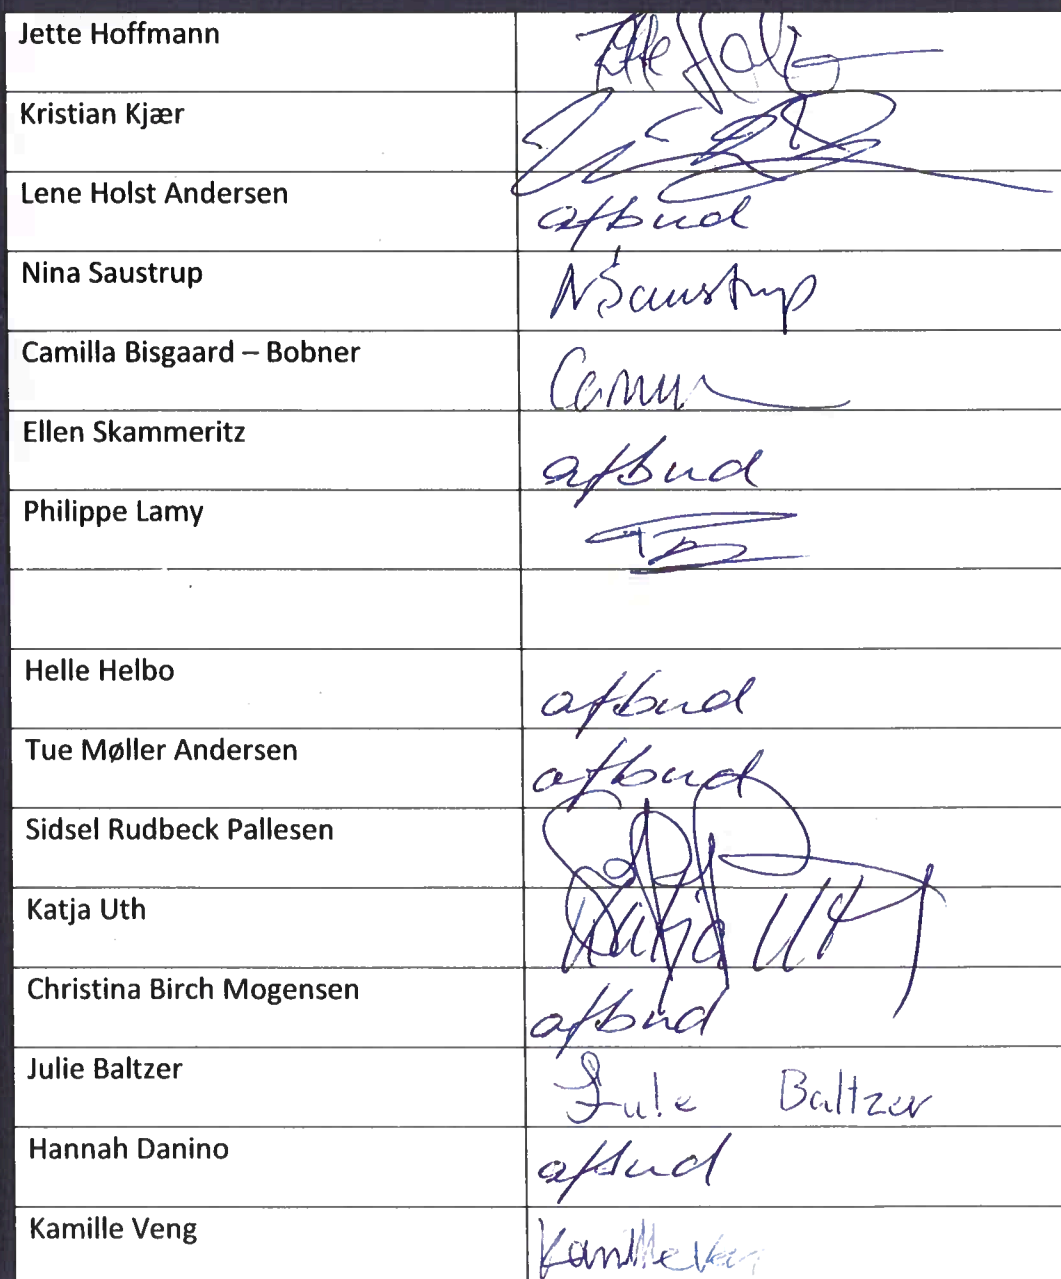 Jette Hoffmann
Kristian Kjær
Lene Holst Andersen afbud
Nina Saustrup NSaustrup
Camilla Bisgaard – Bobner
Ellen Skammeritz afbud
Philippe Lamy
Helle Helbo afbud
Tue Møller Andersen afbud
Sidsel Rudbeck Pallesen
Katja Uth Katja Uth
Christina Birch Mogensen afbud
Julie Baltzer Julie Baltzer
Hannah Danino afbud
Kamille Veng Kamille Veng